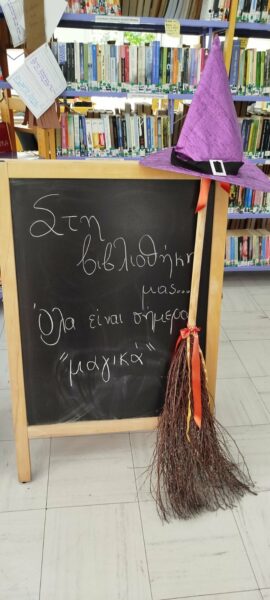 Στη
βιβλιοθήκη
μας...
Όλα είναι σήμερα
"μαγικά"